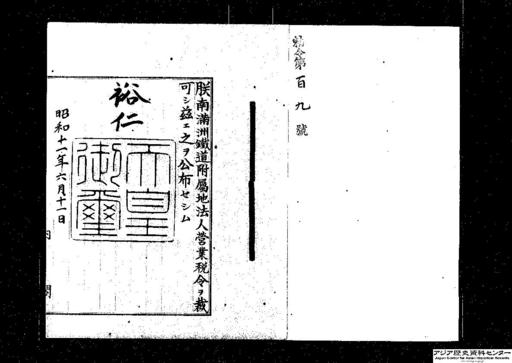 勅令第百九號
朕南滿洲鐵道附屬地法人營業稅令ヲ裁
可シ茲ニ之ヲ公布セシム
裕仁
天皇御璽
昭和十一年六月十一日
内閣
アジア歴史資料センター
Japan Center for Asian Historical Records